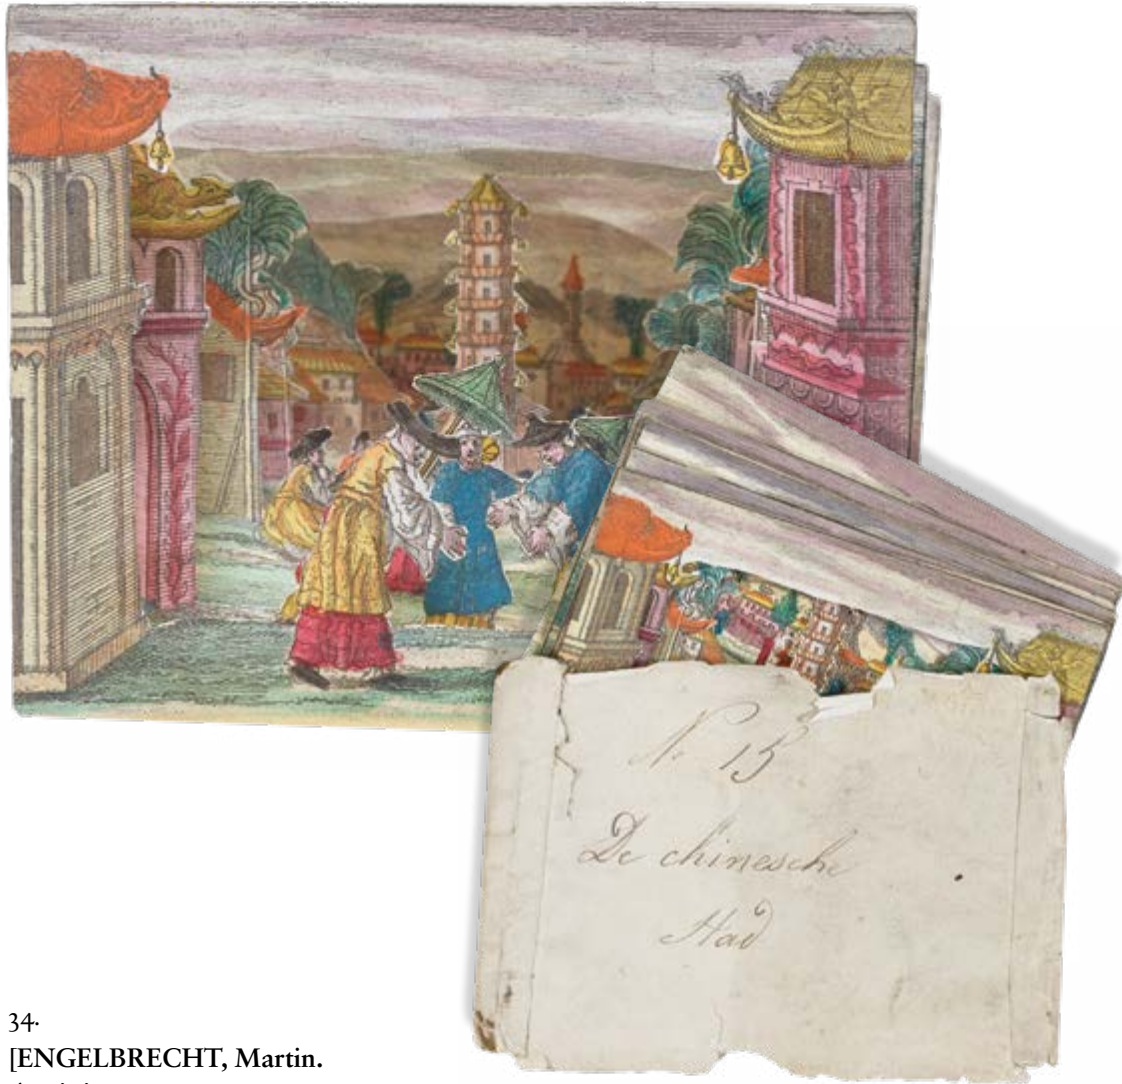 N. 15
De chinesche
Stad
34.
[ENGELBRECHT, Martin.